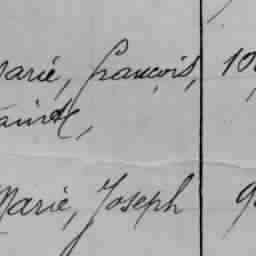 arie, François, 10
Marie, Joseph 9